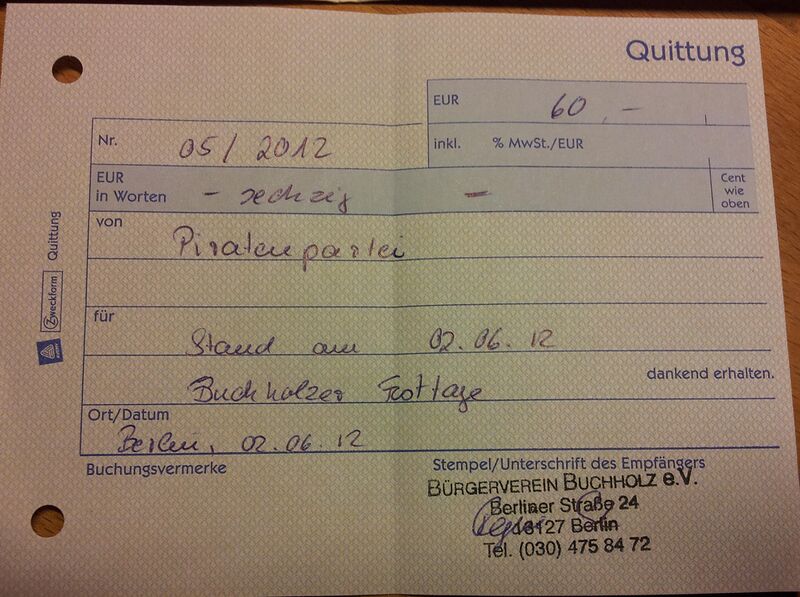 Quittung
EUR 60,-
Nr. 05/2012
inkl. % MwSt./EUR
EUR
in Worten - sechzig -
Cent
wie
oben
von
Piratenpartei
für
Stand am 02.06.12
Buchholzer Festtage
dankend erhalten.
Ort/Datum
Berlin, 02.06.12
Buchungsvermerke
Stempel/Unterschrift des Empfängers
BÜRGERVEREIN BUCHHOLZ e.V.
Berliner Straße 24
13127 Berlin
Tel. (030) 475 84 72
Zweckform Quittung